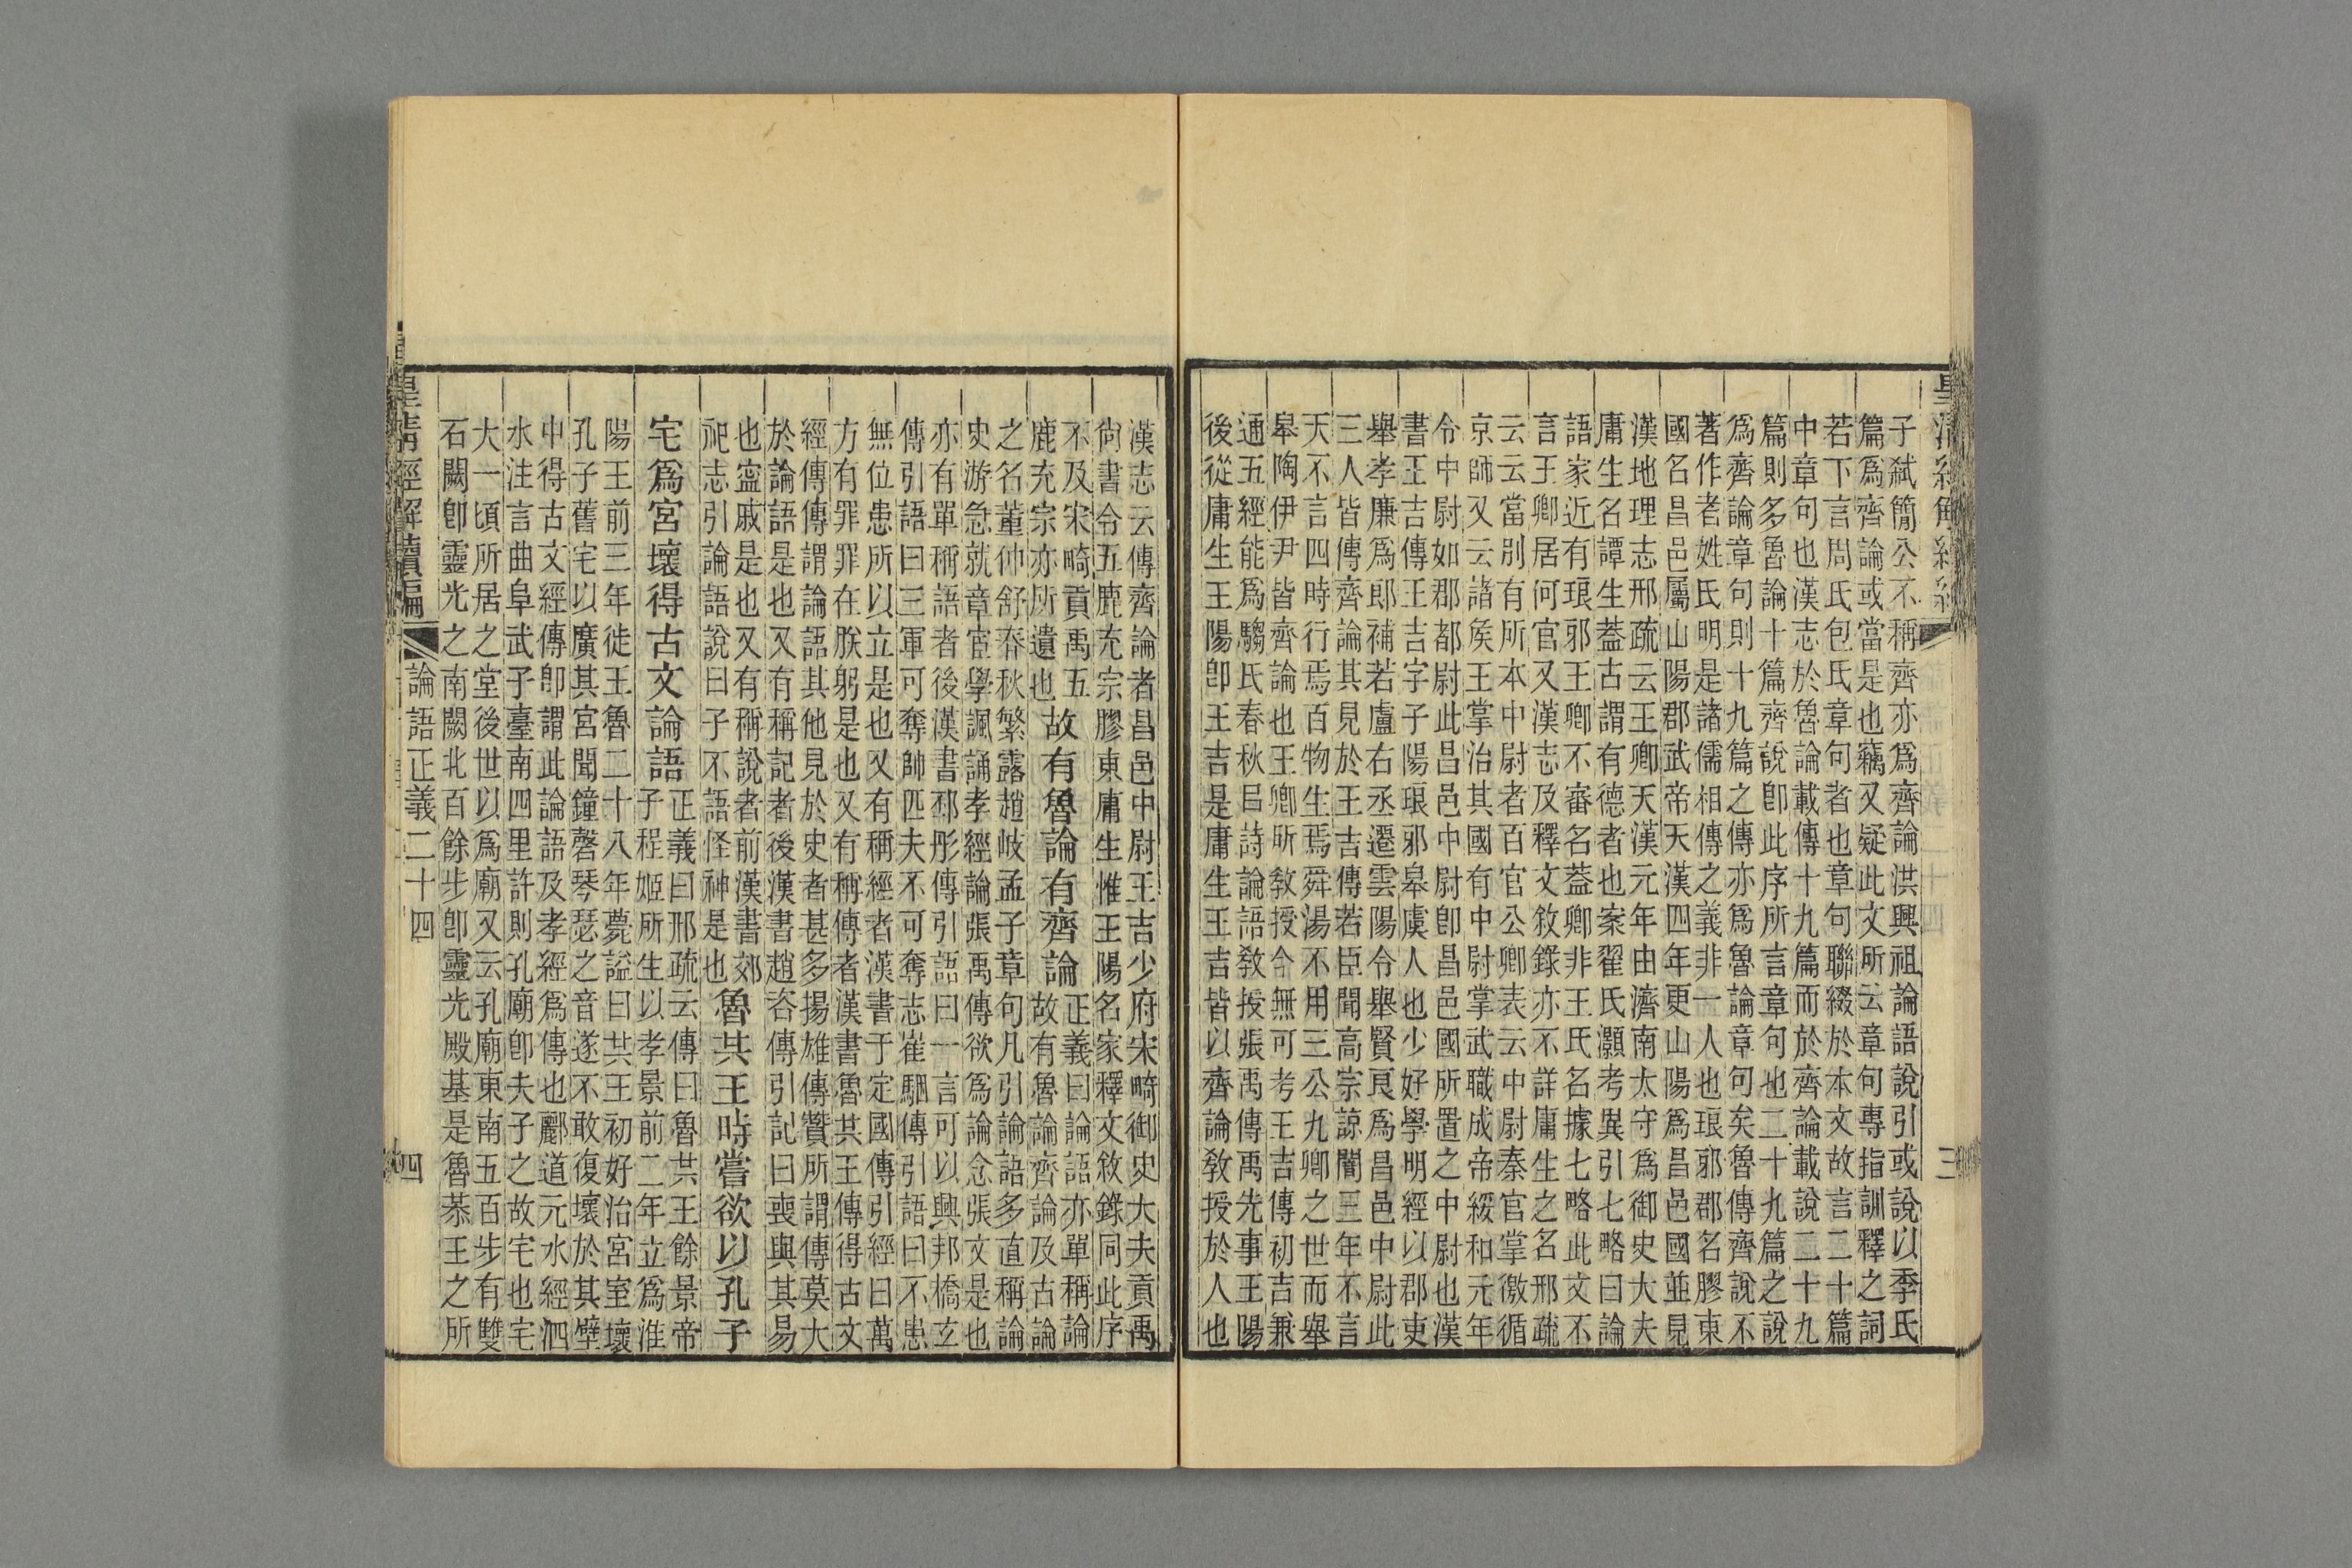 子弑簡公不稱齊亦爲齊論洪興祖論語說引或說以季氏
篇爲齊論或當是也竊又疑此文所云章句專指訓釋之詞
若下言周氏包氏章句者也章句聯綴於本文故言二十篇
中章句也漢志於魯論載傳十九篇而於齊論載說二十九
篇則多魯論十篇齊說卽此序所言章句也二十九篇之說
爲齊論章句則十九篇之傳亦爲魯論章句矣魯傳齊說不
著作者姓氏明是諸儒相傳之義非一人也琅邪郡名膠東
國名昌邑屬山陽郡武帝天漢四年更山陽爲昌邑國並見
漢地理志邢疏云王卿天漢元年由濟南太守爲御史大夫
庸生名譚生蓋古謂有德者也案翟氏灝考異引七略曰論
語家近有琅邪王卿不審名蓋卿非王氏名據七略此文不
言王卿居何官又漢志及釋文敘錄亦不詳庸生之名邢疏
云云當別有所本中尉者百官公卿表云中尉秦官掌徼循
京師又云諸矦王掌治其國有中尉掌武職成帝綏和元年
令中尉如郡都尉此昌邑中尉卽昌邑國所置之中尉也漢
書王吉傳王吉字子陽琅邪皋虞人也少好學明經以郡吏
舉孝廉爲郎補若盧右丞遷雲陽令舉賢良爲昌邑中尉此
三人皆傳齊論其見於王吉傳若臣聞高宗諒闇三年不言
天不言四時行焉百物生焉舜湯不用三公九卿之世而舉
皋陶伊尹皆齊論也王卿所敎授今無可考王吉傳初吉兼
通五經能爲騶氏春秋㠯詩論語敎授張禹傳禹先事王陽
後從庸生王陽卽王吉是庸生王吉皆以齊論敎授於人也
三
漢志云傳齊論者昌邑中尉王吉少府宋畸御史大夫貢禹
尙書令五鹿充宗膠東庸生惟王陽名家釋文敘錄同此序
不及宋畸貢禹五 故有魯論有齊論 正義曰論語亦單稱論
鹿充宗亦所遺也 故有魯論齊論及古論
之名董仲舒春秋繁露趙岐孟子章句凡引論語多直稱論
史游急就章宦學諷誦孝經論張禹傳欲爲論念張文是也
亦有單稱語者後漢書邳彤傳引語曰一言可以興邦橋玄
傳引語曰三軍可奪帥匹夫不可奪志崔駰傳引語曰不患
無位患所以立是也又有稱經者漢書于定國傳引經曰萬
方有罪罪在朕躬是也又有稱傳者漢書魯共王傳得古文
經傳傳謂論語其他見於史者甚多揚雄傳贊所謂傳莫大
於論語是也又有稱記者後漢書趙咨傳引記曰喪與其易
也寧戚是也又有稱說者前漢書郊 魯共王時嘗欲以孔子
祀志引論語說曰子不語怪神是也
宅爲宮壞得古文論語 正義曰邢疏云傳曰魯共王餘景帝
子程姬所生以孝景前二年立爲淮
陽王前三年徙王魯二十八年薨謚曰共王初好治宮室壞
孔子舊宅以廣其宮聞鐘磬琴瑟之音遂不敢復壞於其壁
中得古文經傳卽謂此論語及孝經爲傳也酈道元水經泗
水注言曲阜武子臺南四里許則孔廟卽夫子之故宅也宅
大一頃所居之堂後世以爲廟又云孔廟東南五百步有雙
石闕卽靈光之南闕北百餘步卽靈光殿基是魯恭王之所
皇淸經解續編 論語正義二十四 四